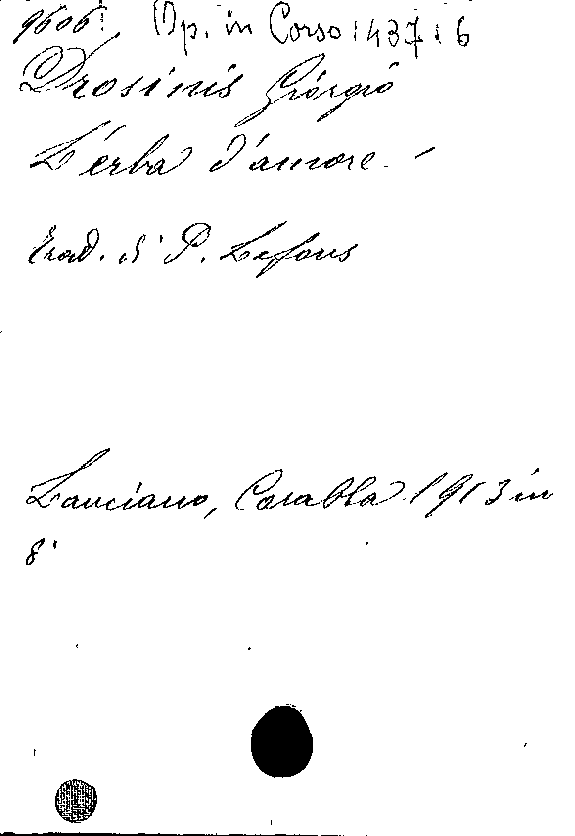 9606. Op. in Corso: 437.6
Drosinis Giorgio
L'erba d'amore. -
trad. di P. Lefons
Lanciano, Carabba 1913 in
8°